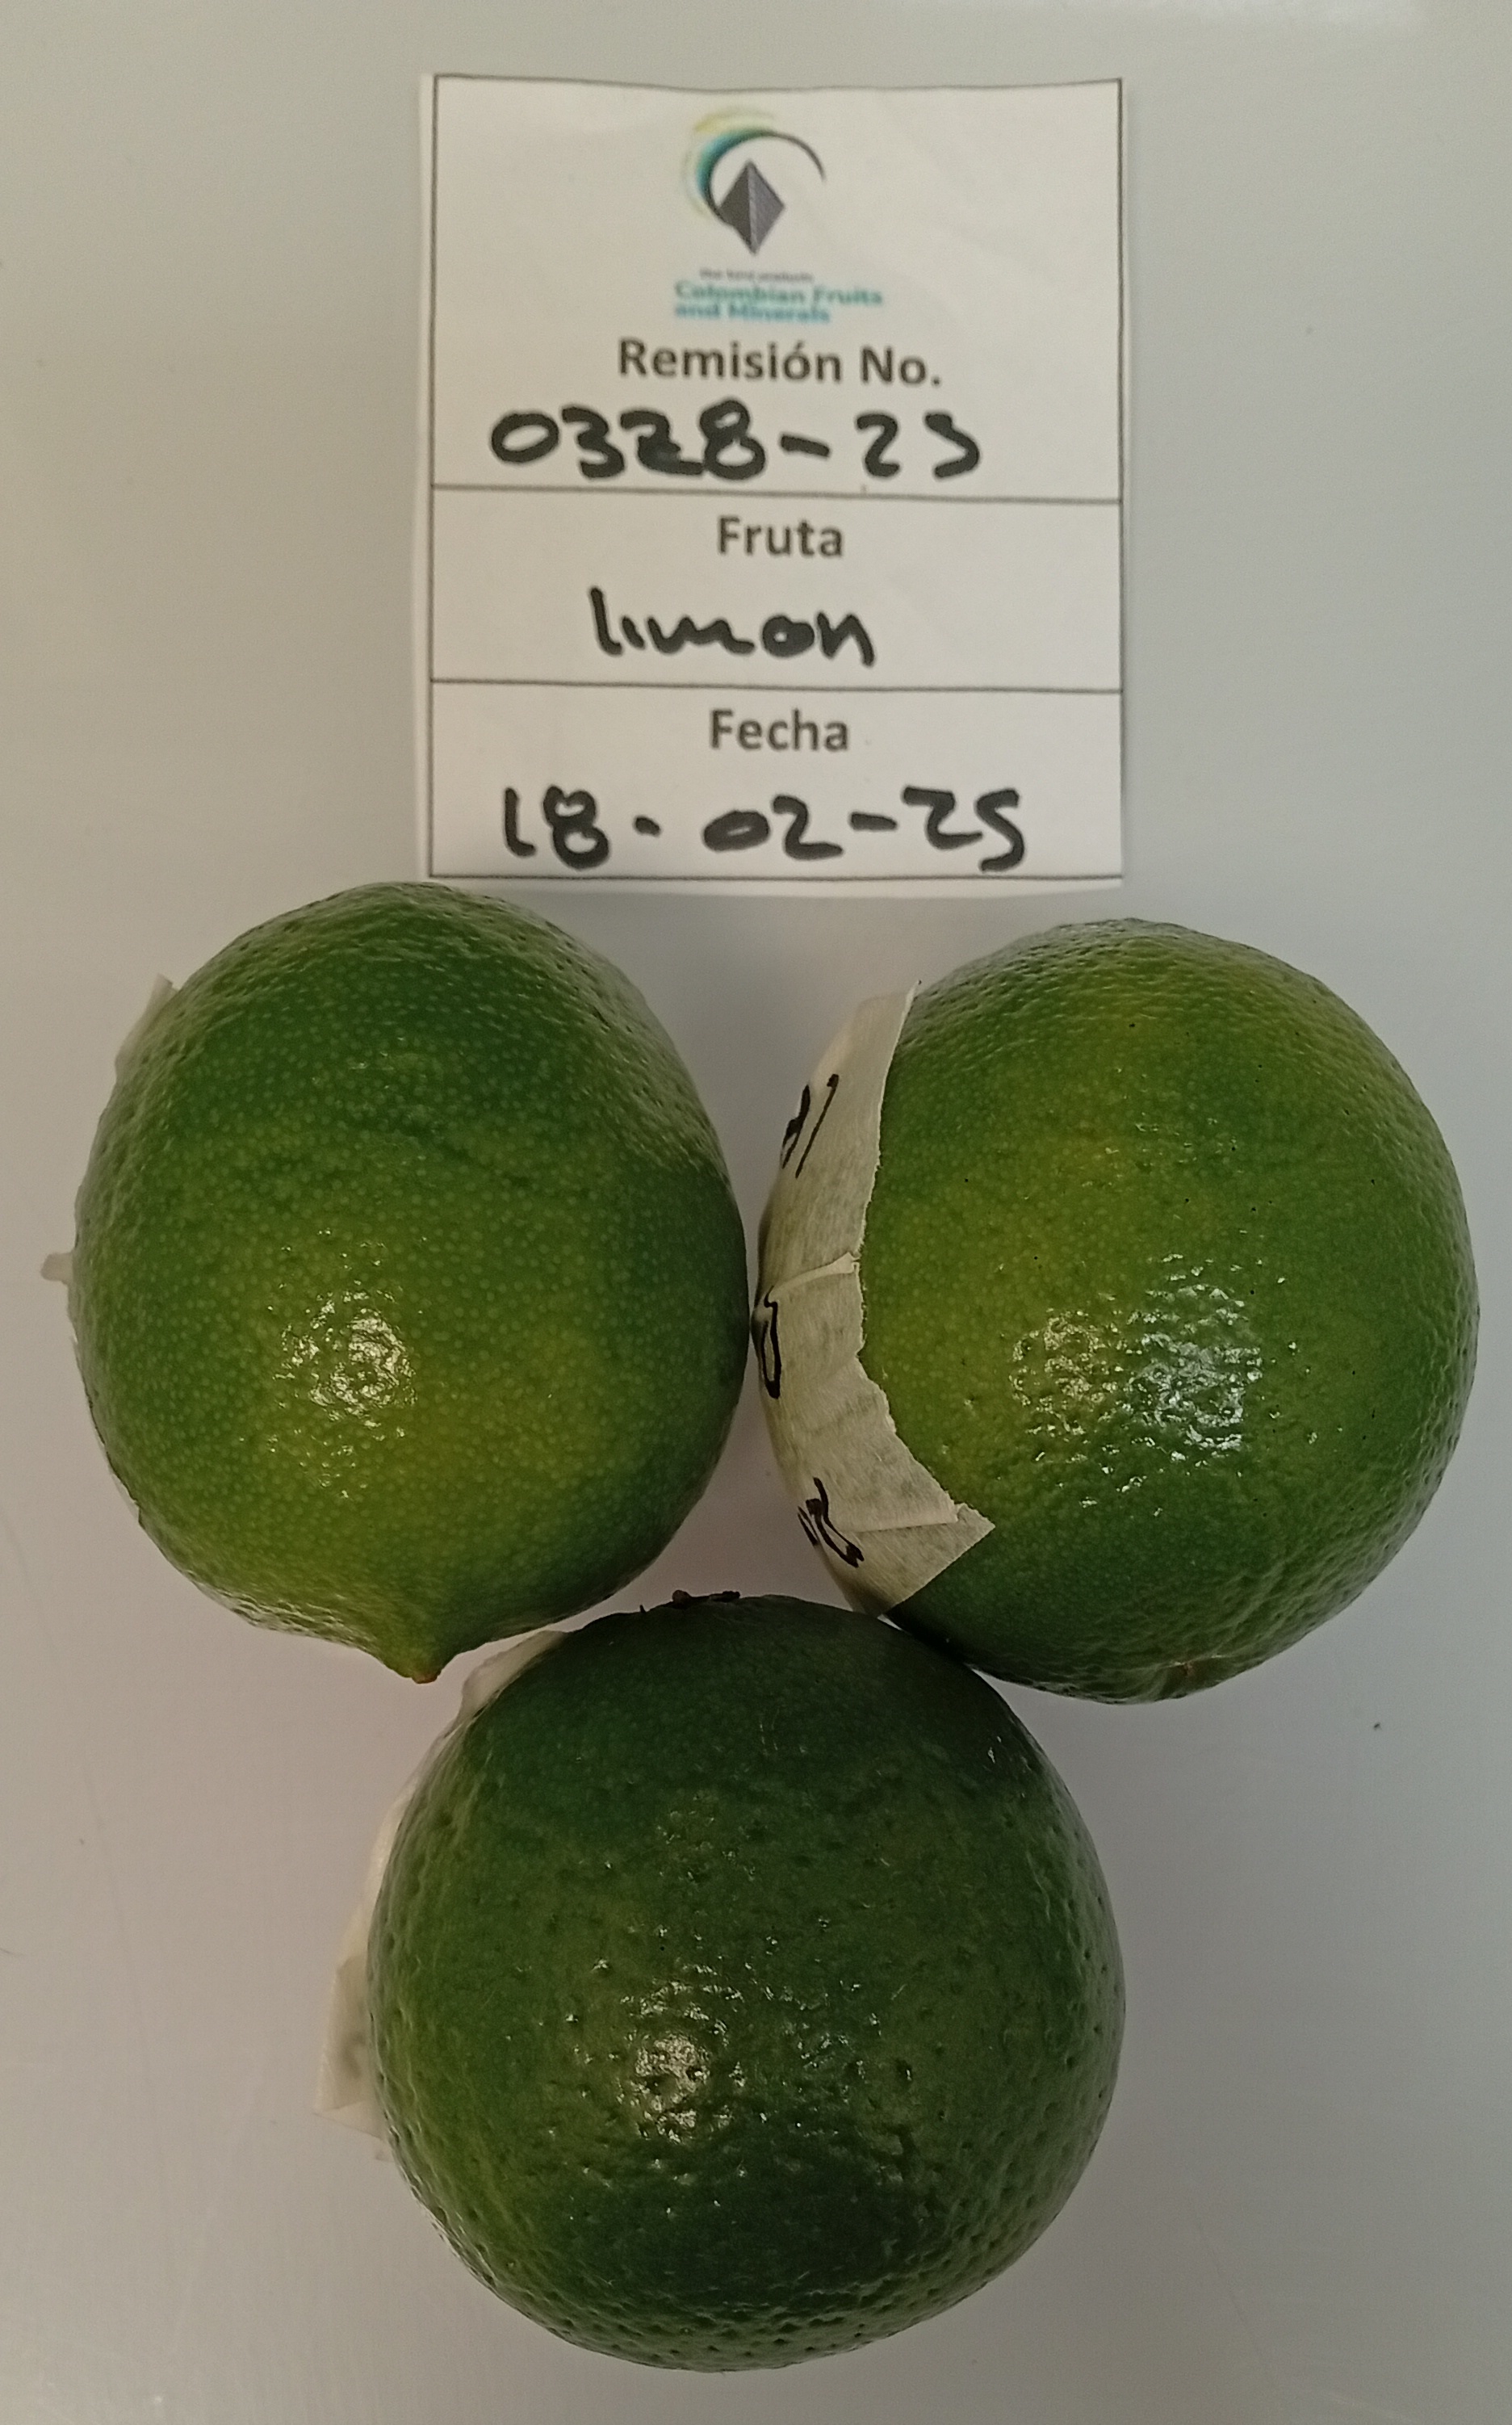 Colombian Fruits
and Minerals
Remisión No.
0328-23
Fruta
limon
Fecha
18-02-25